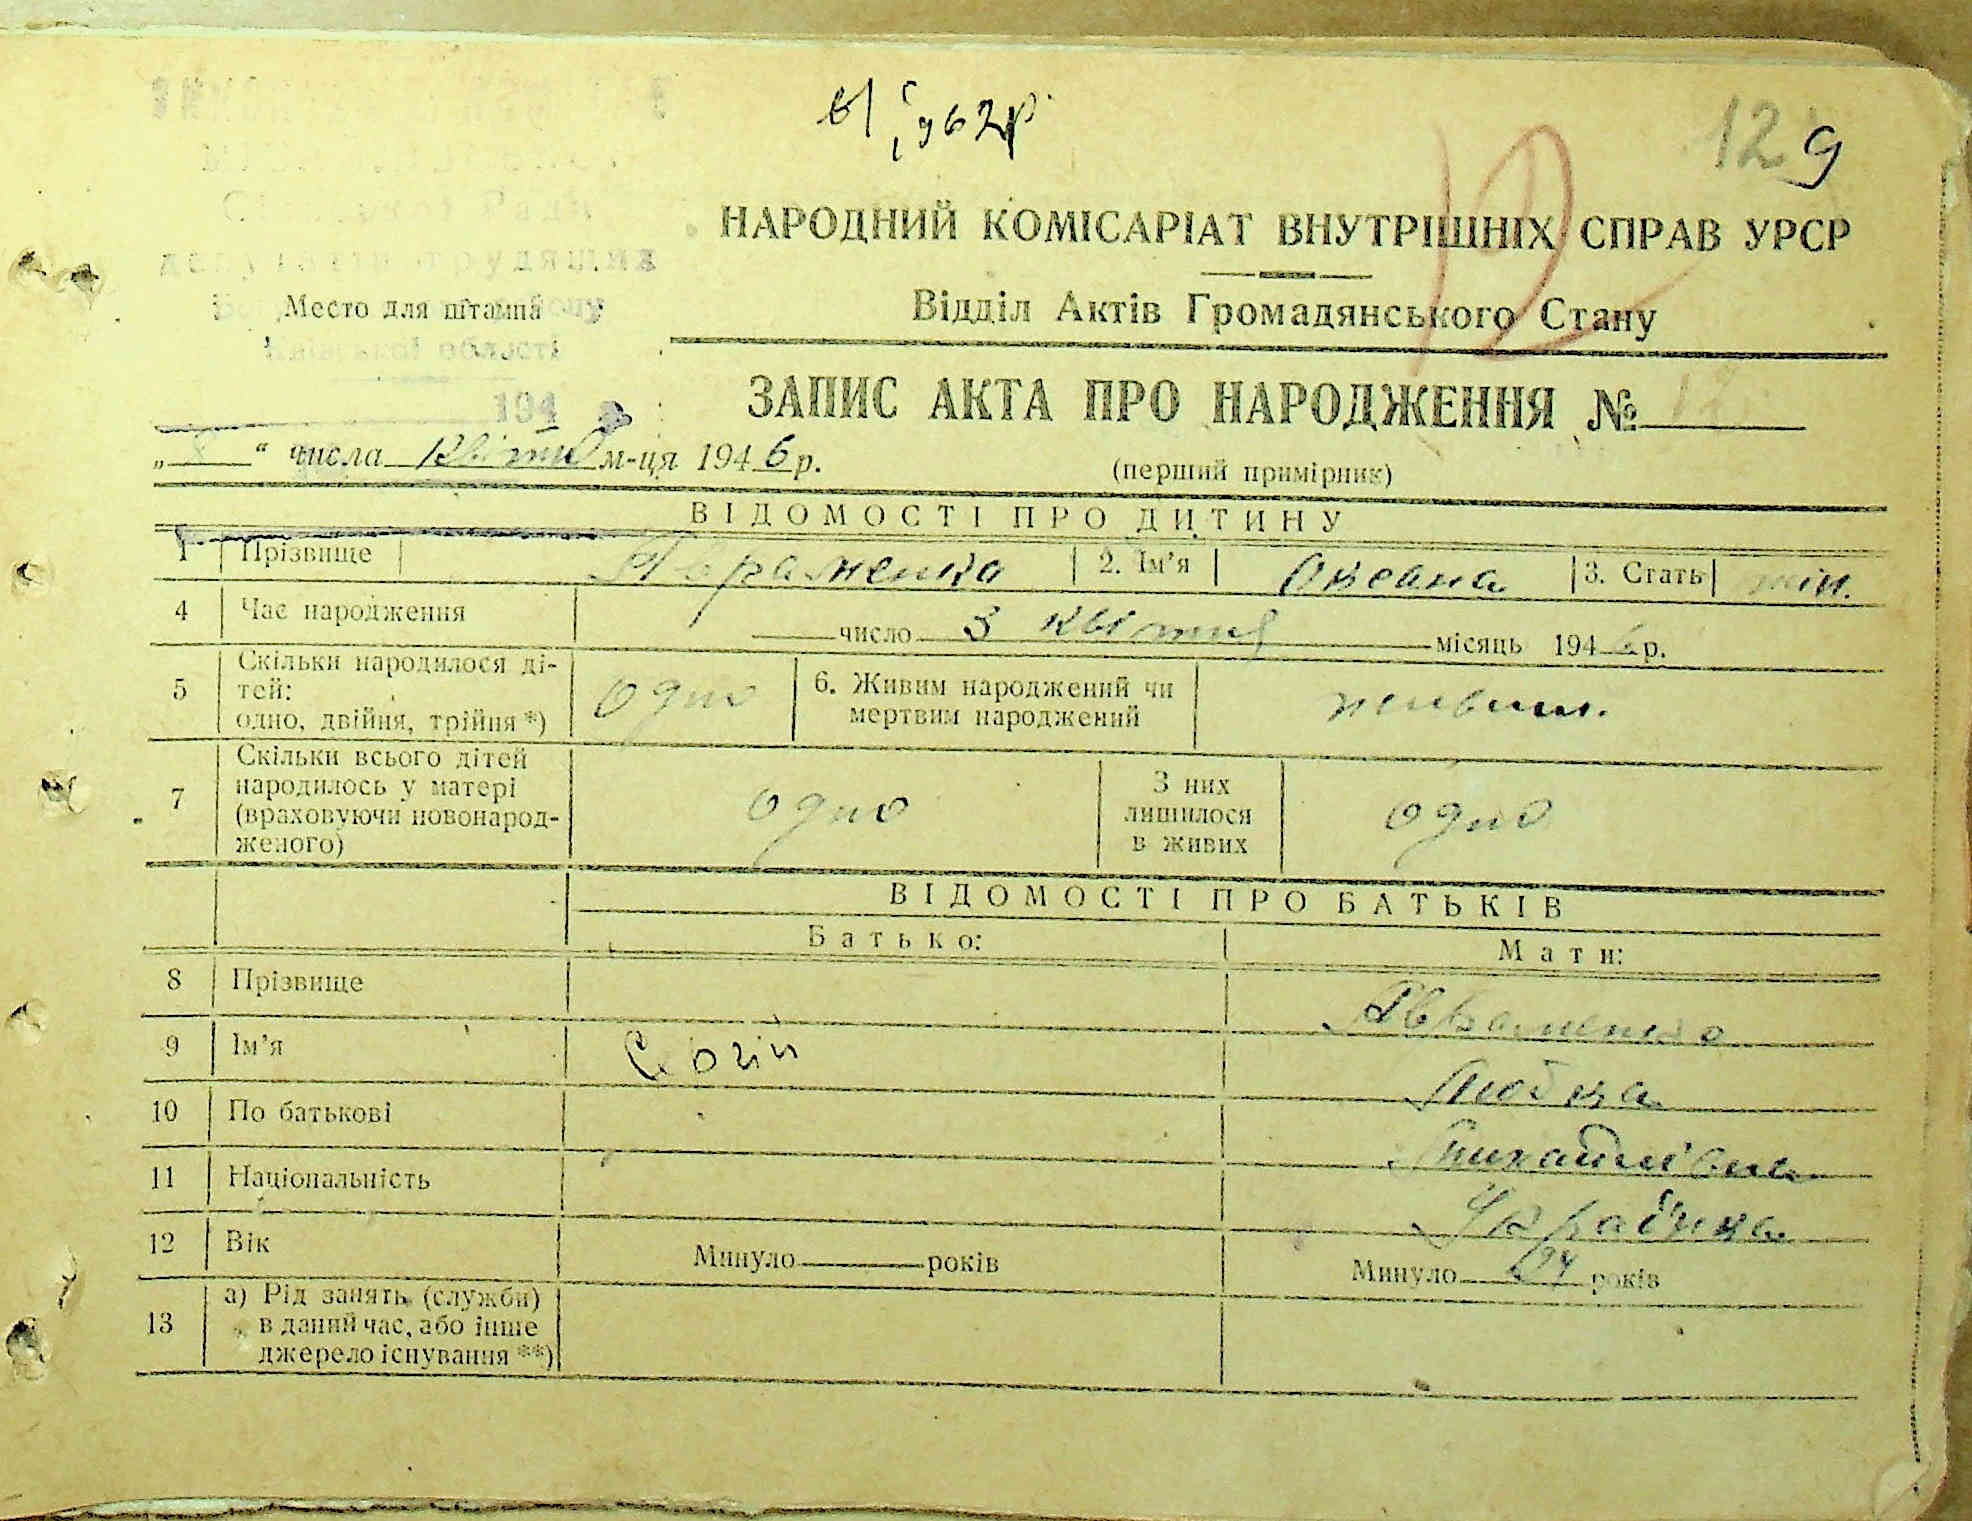 1962р.
129
12
НАРОДНИЙ КОМІСАРІАТ ВНУТРІШНІХ СПРАВ УРСР
Відділ Актів Громадянського Стану
Место для штампа
області
194
ЗАПИС АКТА ПРО НАРОДЖЕННЯ № 12
„ “ числа квітня м-ця 1946 р.
(перший примірник)
ВІДОМОСТІ ПРО ДИТИНУ
1 Прізвище 2. Ім'я Оксана 3. Стать жін.
4 Час народження число 3 квітня місяць 1946 р.
5 Скільки народилося ді-
тей:
одно, двійня, трійня *) одно
6. Живим народжений чи
мертвим народжений живим.
7 Скільки всього дітей
народилось у матері
(враховуючи новонарод-
женого) одно
З них
лишилося
в живих одно
ВІДОМОСТІ ПРО БАТЬКІВ
Батько: Мати:
8 Прізвище Авраменко
9 Ім'я
10 По батькові Михайлівна
11 Національність Українка
12 Вік Минуло років Минуло 24 років
13 а) Рід занять (служби)
в даний час, або інше
джерело існування **)